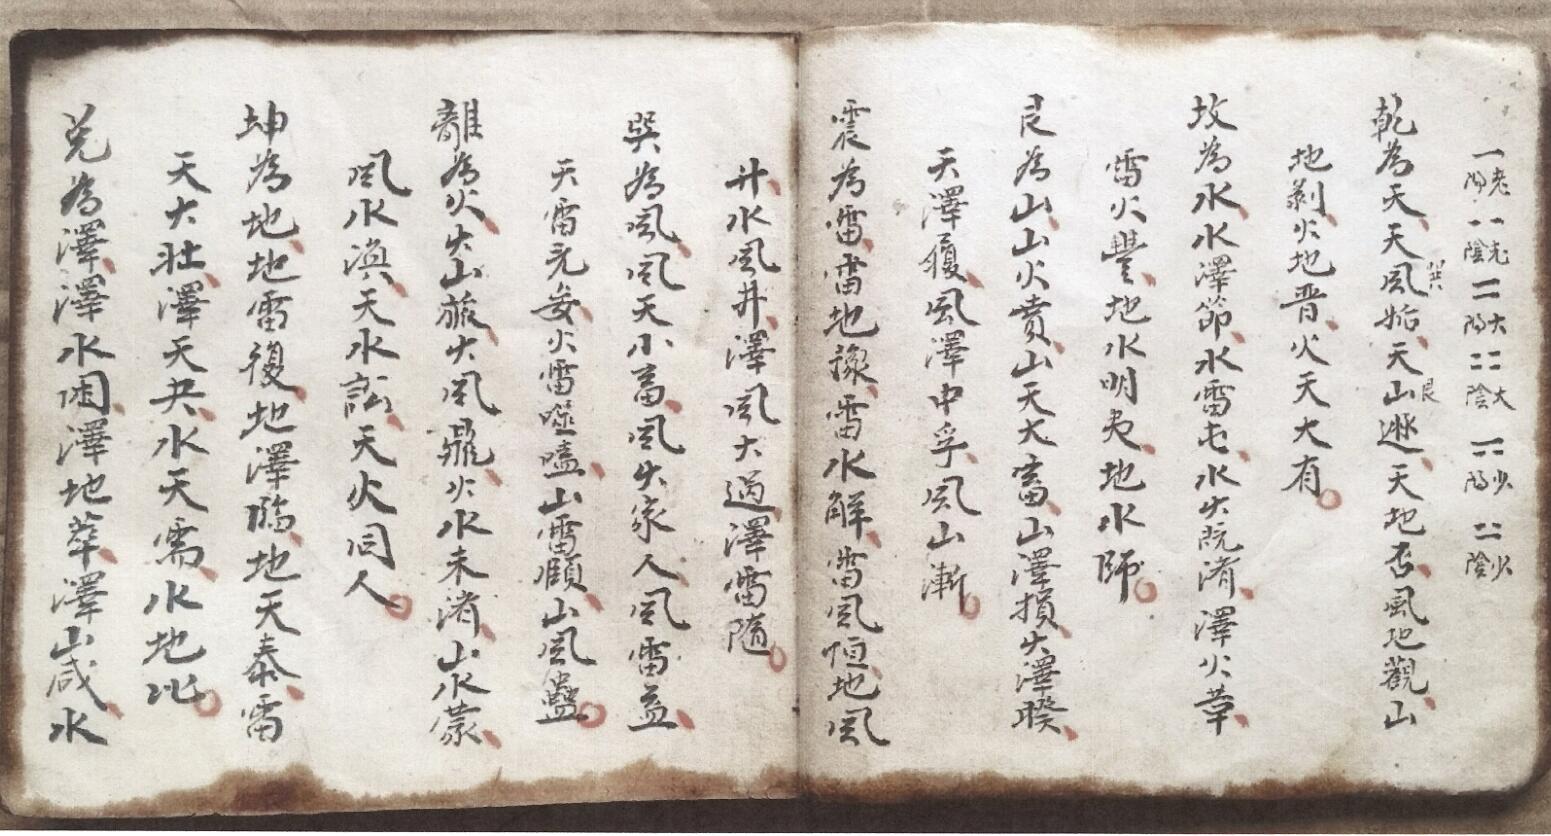 一老陽 一一老陰 二大陽 二二大陰 一二少陽 二一少陰
巽 艮
乾為天天風姤天山遯天地否風地觀山
地剝火地晋火天大有
坎為水水澤節水雷屯水火既濟澤火革
雷火豐地水明夷地水師
艮為山山火賁山天大畜山澤損火澤睽
天澤履風澤中孚風山漸
震為雷雷地豫雷水解雷風恒地風
升水風井澤風大過澤雷隨
巽為風風天小畜風火家人風雷益
天雷无妄火雷噬嗑山雷頤山風蠱
離為火火山旅火風鼎火水未濟山水蒙
風水渙天水訟天火同人
坤為地地雷復地澤臨地天泰雷
天大壯澤天夬水天需水地比
兌為澤澤水困澤地萃澤山咸水